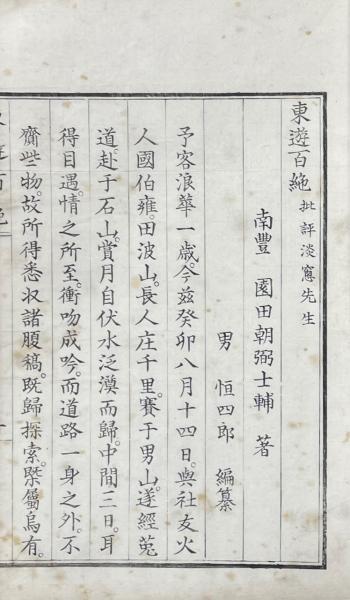 東遊百絶 批評淡窓先生
南豐 園田朝弼士輔 著
男 恒四郎 編纂
予客浪華一歲。今玆癸卯八月十四日。與社友火
人國伯雍。田波山。長人庄千里。賽于男山。遂經菟
道。赴于石山。賞月自伏水泛漠而歸。中間三日。耳
得目遇。情之所至。衝吻成吟。而道路一身之外。不
齎些物。故所得悉収諸腹稿。既歸探索。槩屬烏有。